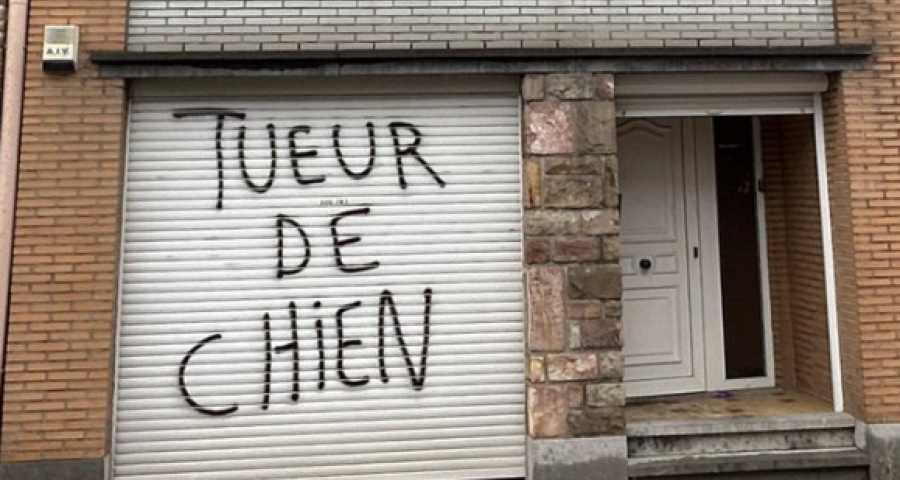 A.I.V.
TUEUR
DE
CHIEN